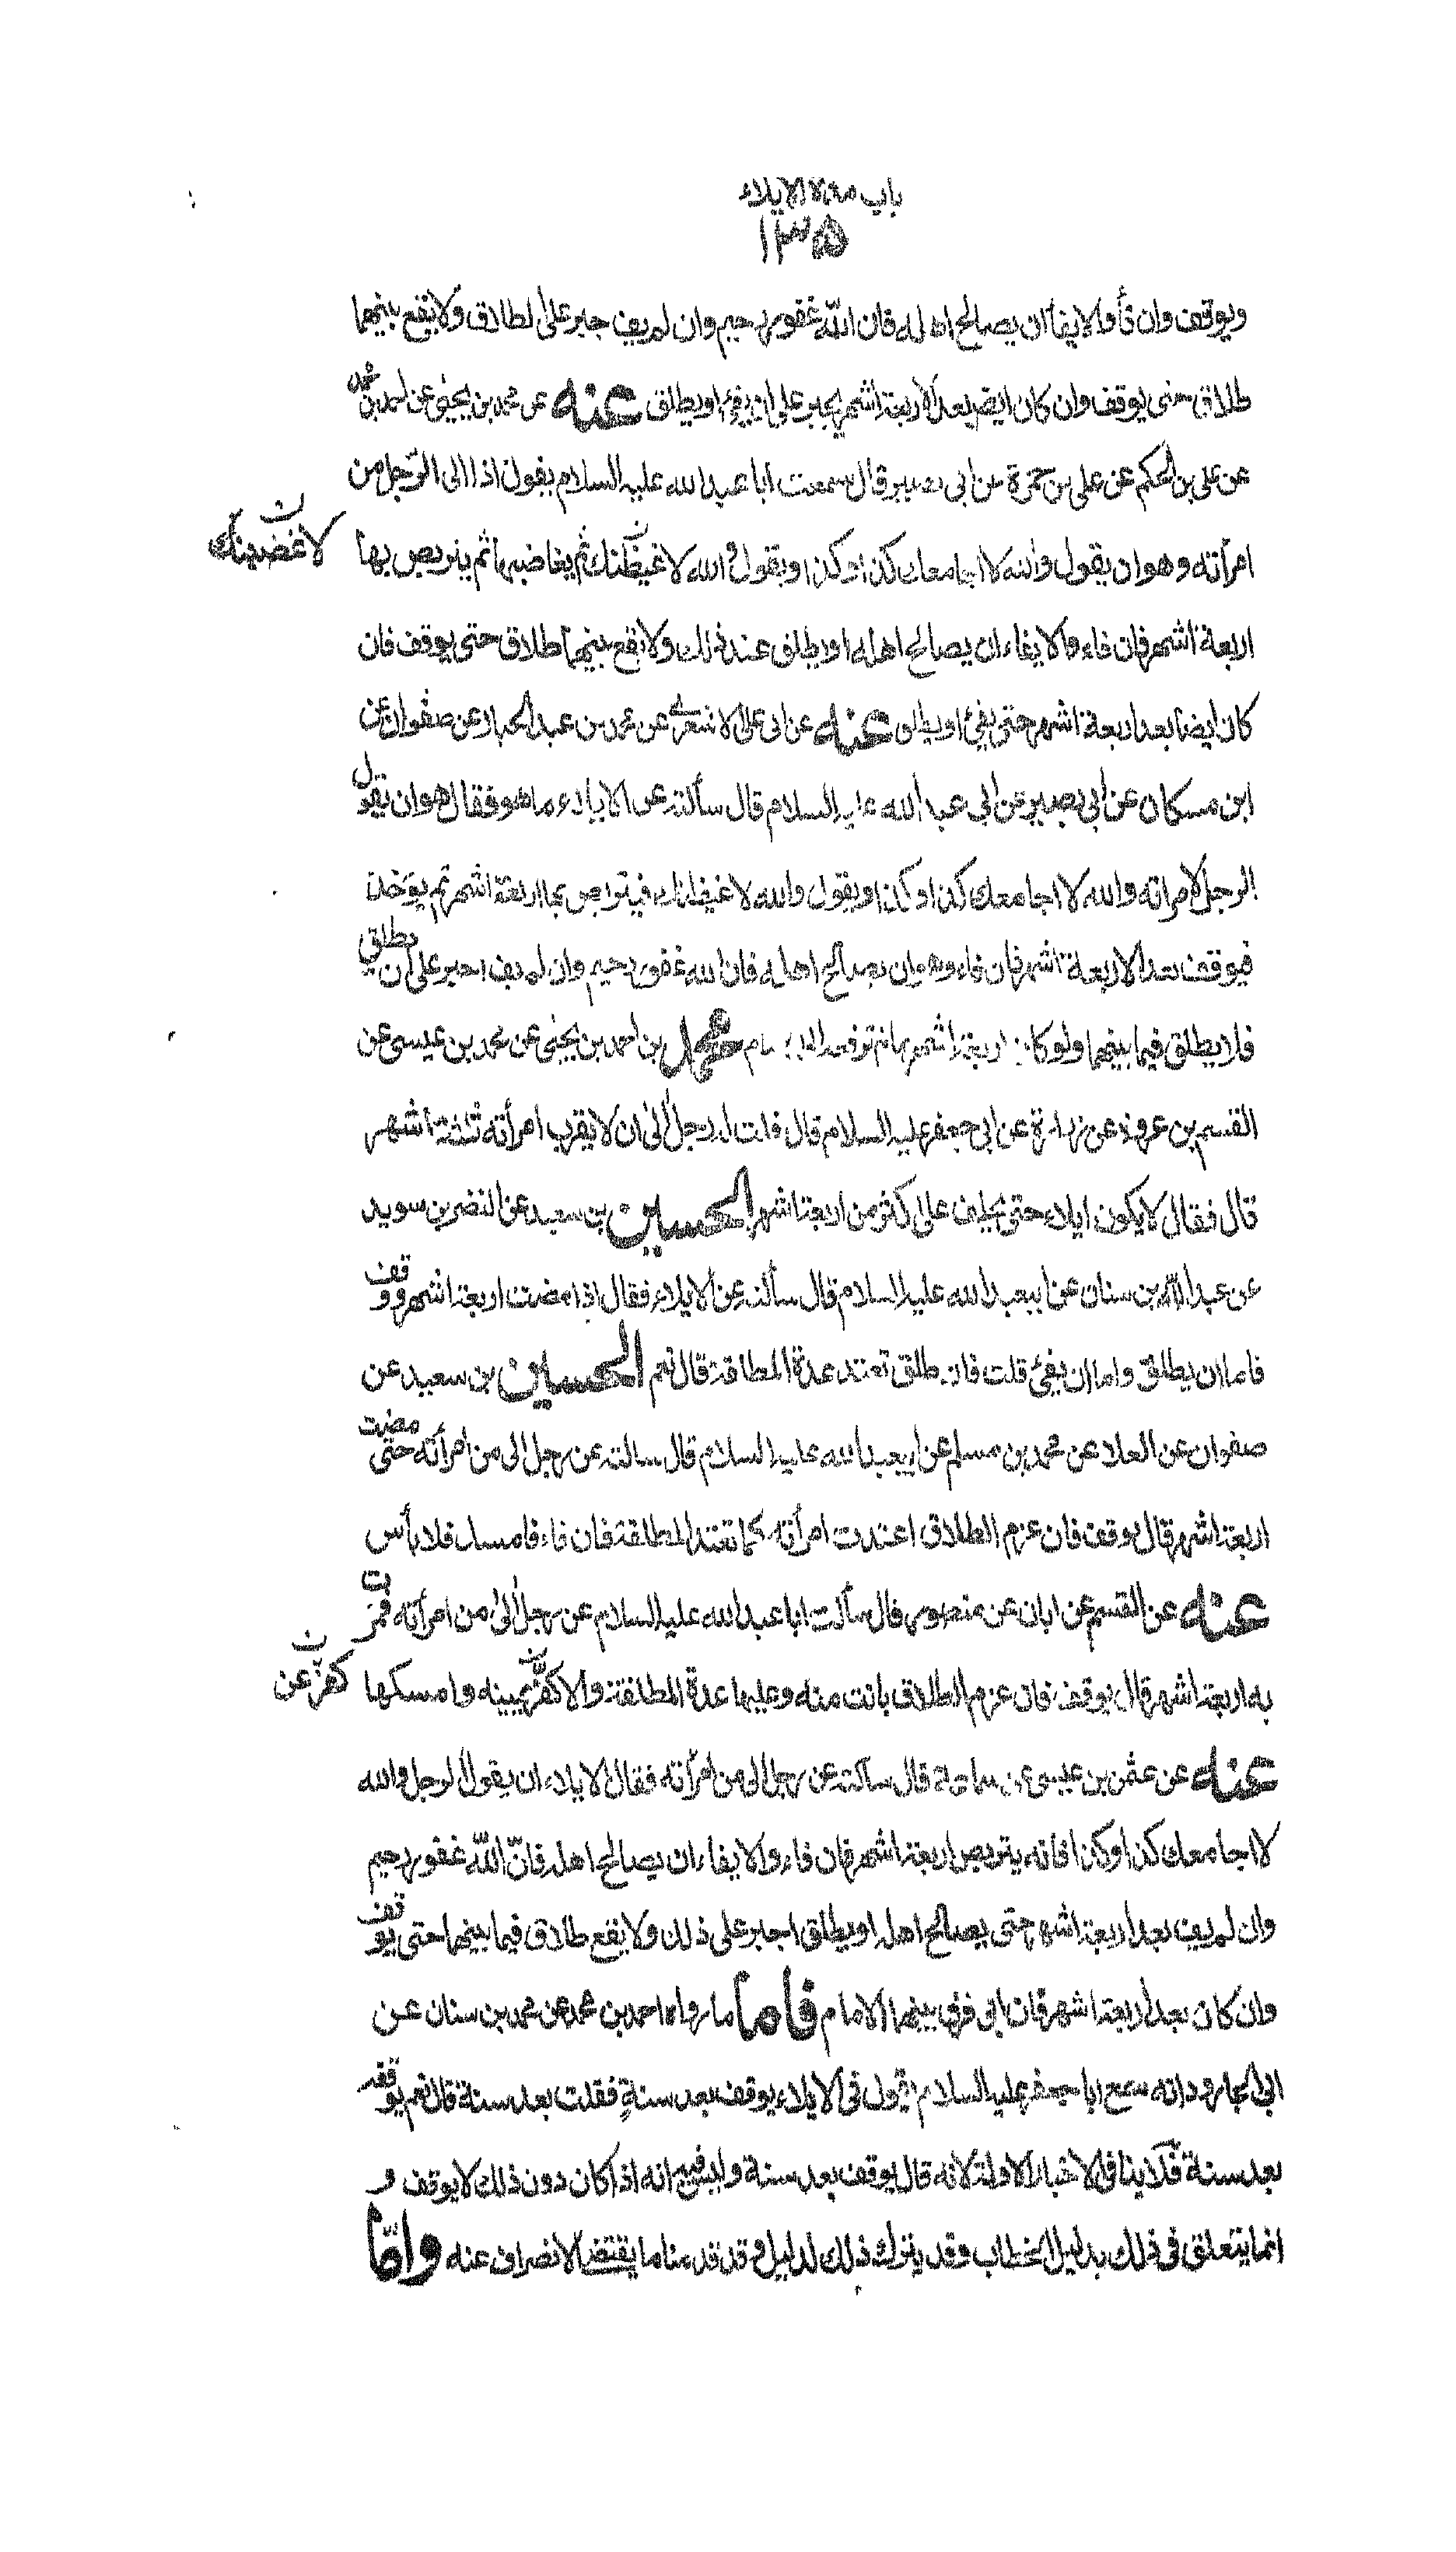 باب مدة الايلاء
١٣٥
ويوقف وان فأ والايفاان يصالح اهله فان الله غفور رحيم وان لم يف جبر على الطلاق ولايقع بينهما
طلاق حتى يوقف وان كان ايض بعد الاربعة اشهر يجبر على ان يفئ او يطلق عنه عن محمد بن يحيى عن احمد بن محمد
عن على بن الحكم عن على بن حمزة عن ابى بصير قال سمعت ابا عبد الله عليه السلام يقول اذا الى الرّجل من
امرأته وهوان يقول والله لا اجامعك كذا وكذا ويقول والله لاغيظنك ثم يغاضبها ثم يتربص بها
لاغضبنك
اربعة اشهر فان فاء والايفاء ان يصالح اهله او يطلق عند ذلك ولا يقع بينهما طلاق حتى يوقف فان
كان ايضا بعد اربعة اشهر حتى يفئ او يطلق عنه عن ابى على الاشعرى عن محمد بن عبد الجبار عن صفوان عن
ابن مسكان عن ابى بصير عن ابى عبد الله عليه السلام قال سألته عن الايلاء ما هو فقال هو ان يقول
الرجل لامراته والله لا اجامعك كذا وكذا ويقول والله لاغيظنك فيتربص بها اربعة اشهر ثم يؤخذ
فيوقف بعد الاربعة اشهر فان فاء وهو ان يصالح اهله فان الله غفور رحيم وان لم يف اجبر على ان يطلق
فلا يطلق فيما بينهما ولو كان اربعة اشهر مالم ترفعه الى الامام محمد بن احمد بن يحيى عن محمد بن عيسى عن
القسم بن عروة عن زرارة عن ابى جعفر عليه السلام قال قلت له رجل الى ان لا يقرب امرأته ثلثة اشهر
قال فقال لا يكون ايلاء حتى يحلف على اكثر من اربعة اشهر الحسين بن سعيد عن النضر بن سويد
عن عبد الله بن سنان عن ابيعبد الله عليه السلام قال سألته عن الايلاء فقال اذا مضت اربعة اشهر ووقف
فاما ان يطلق واما ان يفئ قلت فان طلق تعتد عدة المطلقة قال نعم الحسين بن سعيد عن
صفوان عن العلا عن محمد بن مسلم عن ابيعبد الله عليه السلام قال سالته عن رجل الى من امرأته حتى مضت
اربعة اشهر قال يوقف فان عزم الطلاق اعتدت امرأته كما تعتد المطلقة فان فاء فامسك فلا بأس
عنه عن القسم عن ابان عن منصور قال سألت ابا عبد الله عليه السلام عن رجل الى من امرأته فمرّت
به اربعة اشهر قال يوقف فان عزم الطلاق بانت منه وعليها عدة المطلقة والا كفّر يمينه وامسكها
كفر عن
عنه عن عثمن بن عيسى عن سماعة قال سألته عن رجل الى من امرأته فقال الايلاء ان يقول الرجل والله
لا اجامعك كذا وكذا فانه يتربص اربعة اشهر فان فاء والايفاء ان يصالح اهله فانّ الله غفور رحيم
وان لم يف بعد اربعة اشهر حتى يصالح اهله او يطلق اجبر على ذلك ولا يقع طلاق فيما بينهما حتى يوقف
وان كان بعد اربعة اشهر فان ابى فرق بينهما الامام فاما ما رواه احمد بن محمد عن محمد بن سنان عن
ابى الجارود انه سمع ابا جعفر عليه السلام يقول فى الايلاء يوقف بعد سنة فقلت بعد سنة قال نعم يوقف
بعد سنة فلا ينافى الاخبار الاولة لانه قال يوقف بعد سنة وليس فيه انه اذا كان دون ذلك لا يوقف و
انما يتعلق فى ذلك بدليل الخطاب وقد يترك ذلك لدليل وقد قدمنا ما يقتضى الانصراف عنه وامّا